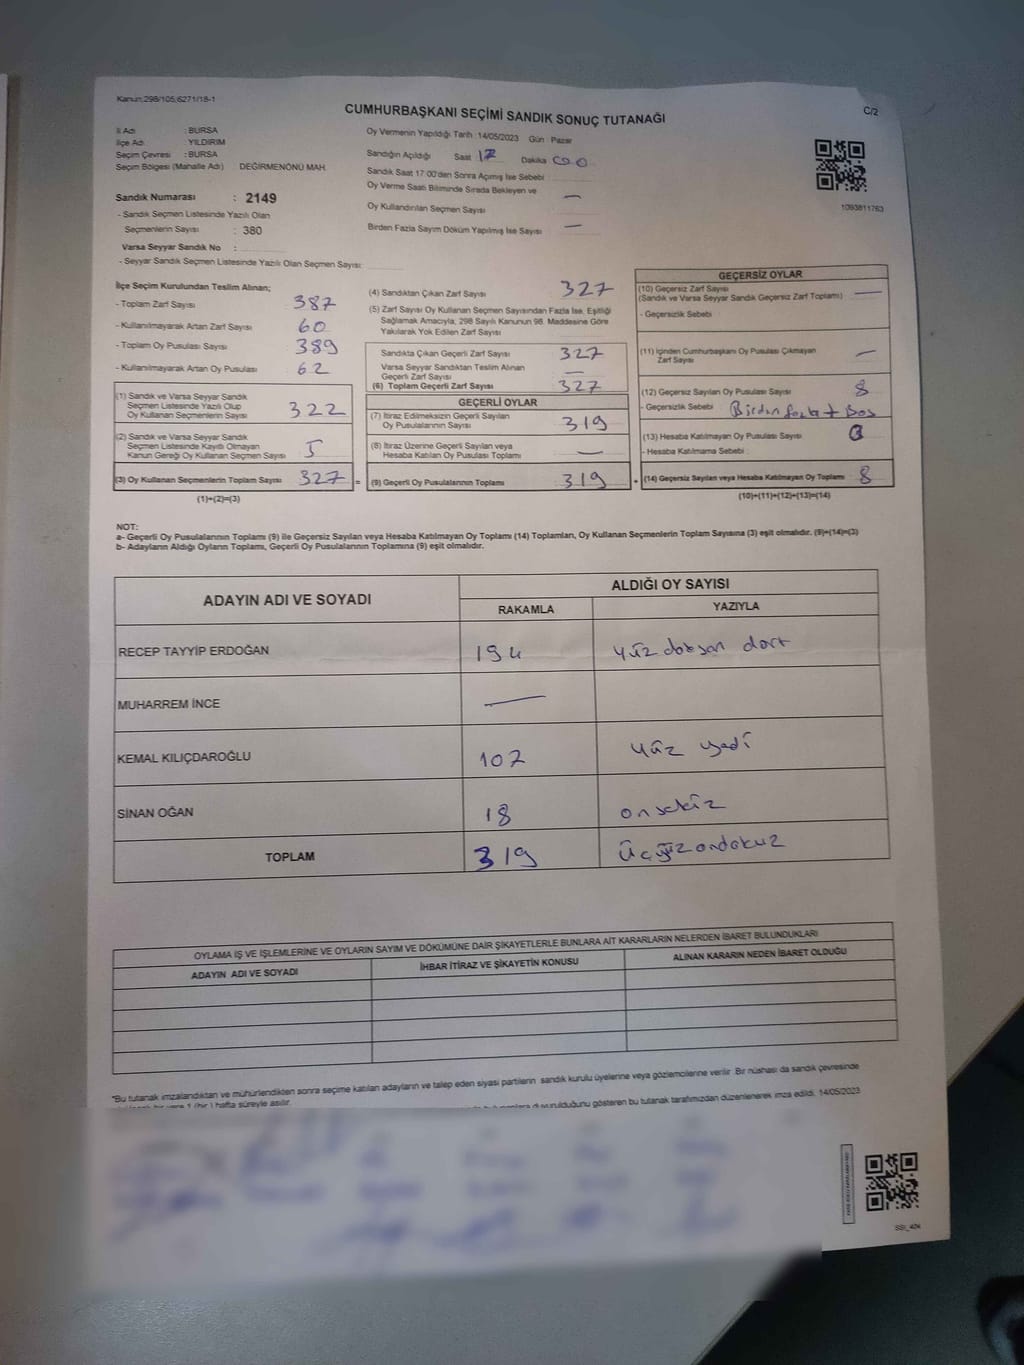 Kanun:298/105,6271/18-1
C/2
CUMHURBAŞKANI SEÇİMİ SANDIK SONUÇ TUTANAĞI
İl Adı : BURSA
İlçe Adı : YILDIRIM
Seçim Çevresi : BURSA
Seçim Bölgesi (Mahalle Adı) DEĞİRMENÖNÜ MAH.
Sandık Numarası : 2149
- Sandık Seçmen Listesinde Yazılı Olan
Seçmenlerin Sayısı : 380
Varsa Seyyar Sandık No :
- Seyyar Sandık Seçmen Listesinde Yazılı Olan Seçmen Sayısı:
Oy Vermenin Yapıldığı Tarih :14/05/2023 Gün Pazar
Sandığın Açıldığı Saat 17 Dakika 00
Sandık Saat 17:00'den Sonra Açımış İse Sebebi :
Oy Verme Saati Bitiminde Sırada Bekleyen ve —
Oy Kullandırılan Seçmen Sayısı
Birden Fazla Sayım Döküm Yapılmış İse Sayısı —
1093811763
İlçe Seçim Kurulundan Teslim Alınan;
- Toplam Zarf Sayısı 387
- Kullanılmayarak Artan Zarf Sayısı 60
- Toplam Oy Pusulası Sayısı 389
- Kullanılmayarak Artan Oy Pusulası 62
(1) Sandık ve Varsa Seyyar Sandık
Seçmen Listesinde Yazılı Olup
Oy Kullanan Seçmenlerin Sayısı 322
(2) Sandık ve Varsa Seyyar Sandık
Seçmen Listesinde Kayıtlı Olmayan
Kanun Gereği Oy Kullanan Seçmen Sayısı 5
(3) Oy Kullanan Seçmenlerin Toplam Sayısı 327 =
(1)+(2)=(3)
(4) Sandıktan Çıkan Zarf Sayısı 327
(5) Zarf Sayısı Oy Kullanan Seçmen Sayısından Fazla İse, Eşitliği
Sağlamak Amacıyla, 298 Sayılı Kanunun 98. Maddesine Göre
Yakılarak Yok Edilen Zarf Sayısı
Sandıkta Çıkan Geçerli Zarf Sayısı 327
Varsa Seyyar Sandıktan Teslim Alınan
Geçerli Zarf Sayısı —
(6) Toplam Geçerli Zarf Sayısı 327
GEÇERLİ OYLAR
(7) İtiraz Edilmeksizin Geçerli Sayılan
Oy Pusulalarının Sayısı 319
(8) İtiraz Üzerine Geçerli Sayılan veya
Hesaba Katılan Oy Pusulası Toplamı —
(9) Geçerli Oy Pusulalarının Toplamı 319 +
GEÇERSİZ OYLAR
(10) Geçersiz Zarf Sayısı
(Sandık ve Varsa Seyyar Sandık Geçersiz Zarf Toplamı) —
- Geçersizlik Sebebi
(11) İçinden Cumhurbaşkanı Oy Pusulası Çıkmayan
Zarf Sayısı —
(12) Geçersiz Sayılan Oy Pusulası Sayısı 8
- Geçersizlik Sebebi Birden fazla + Boş
(13) Hesaba Katılmayan Oy Pusulası Sayısı
- Hesaba Katılmama Sebebi :
(14) Geçersiz Sayılan veya Hesaba Katılmayan Oy Toplamı 8
(10)+(11)+(12)+(13)=(14)
NOT:
a- Geçerli Oy Pusulalarının Toplamı (9) ile Geçersiz Sayılan veya Hesaba Katılmayan Oy Toplamı (14) Toplamları, Oy Kullanan Seçmenlerin Toplam Sayısına (3) eşit olmalıdır. (9)+(14)=(3)
b- Adayların Aldığı Oyların Toplamı, Geçerli Oy Pusulalarının Toplamına (9) eşit olmalıdır.
ADAYIN ADI VE SOYADI
ALDIĞI OY SAYISI
RAKAMLA YAZIYLA
RECEP TAYYİP ERDOĞAN 194 yüz doksan dört
MUHARREM İNCE —
KEMAL KILIÇDAROĞLU 107 yüz yedi
SİNAN OĞAN 18 onsekiz
TOPLAM 319 üçyüzondokuz
OYLAMA İŞ VE İŞLEMLERİNE VE OYLARIN SAYIM VE DÖKÜMÜNE DAİR ŞİKAYETLERLE BUNLARA AİT KARARLARIN NELERDEN İBARET BULUNDUKLARI
ADAYIN ADI VE SOYADI İHBAR İTİRAZ VE ŞİKAYETİN KONUSU ALINAN KARARIN NEDEN İBARET OLDUĞU
*Bu tutanak imzalandıktan ve mühürlendikten sonra seçime katılan adayların ve talep eden siyasi partilerin sandık kurulu üyelerine veya gözlemcilerine verilir. Bir nüshası da sandık çevresinde
bir yere 1 (bir) hafta süreyle asılır. duyurulduğunu gösteren bu tutanak tarafımızdan düzenlenerek imza edildi. 14/05/2023